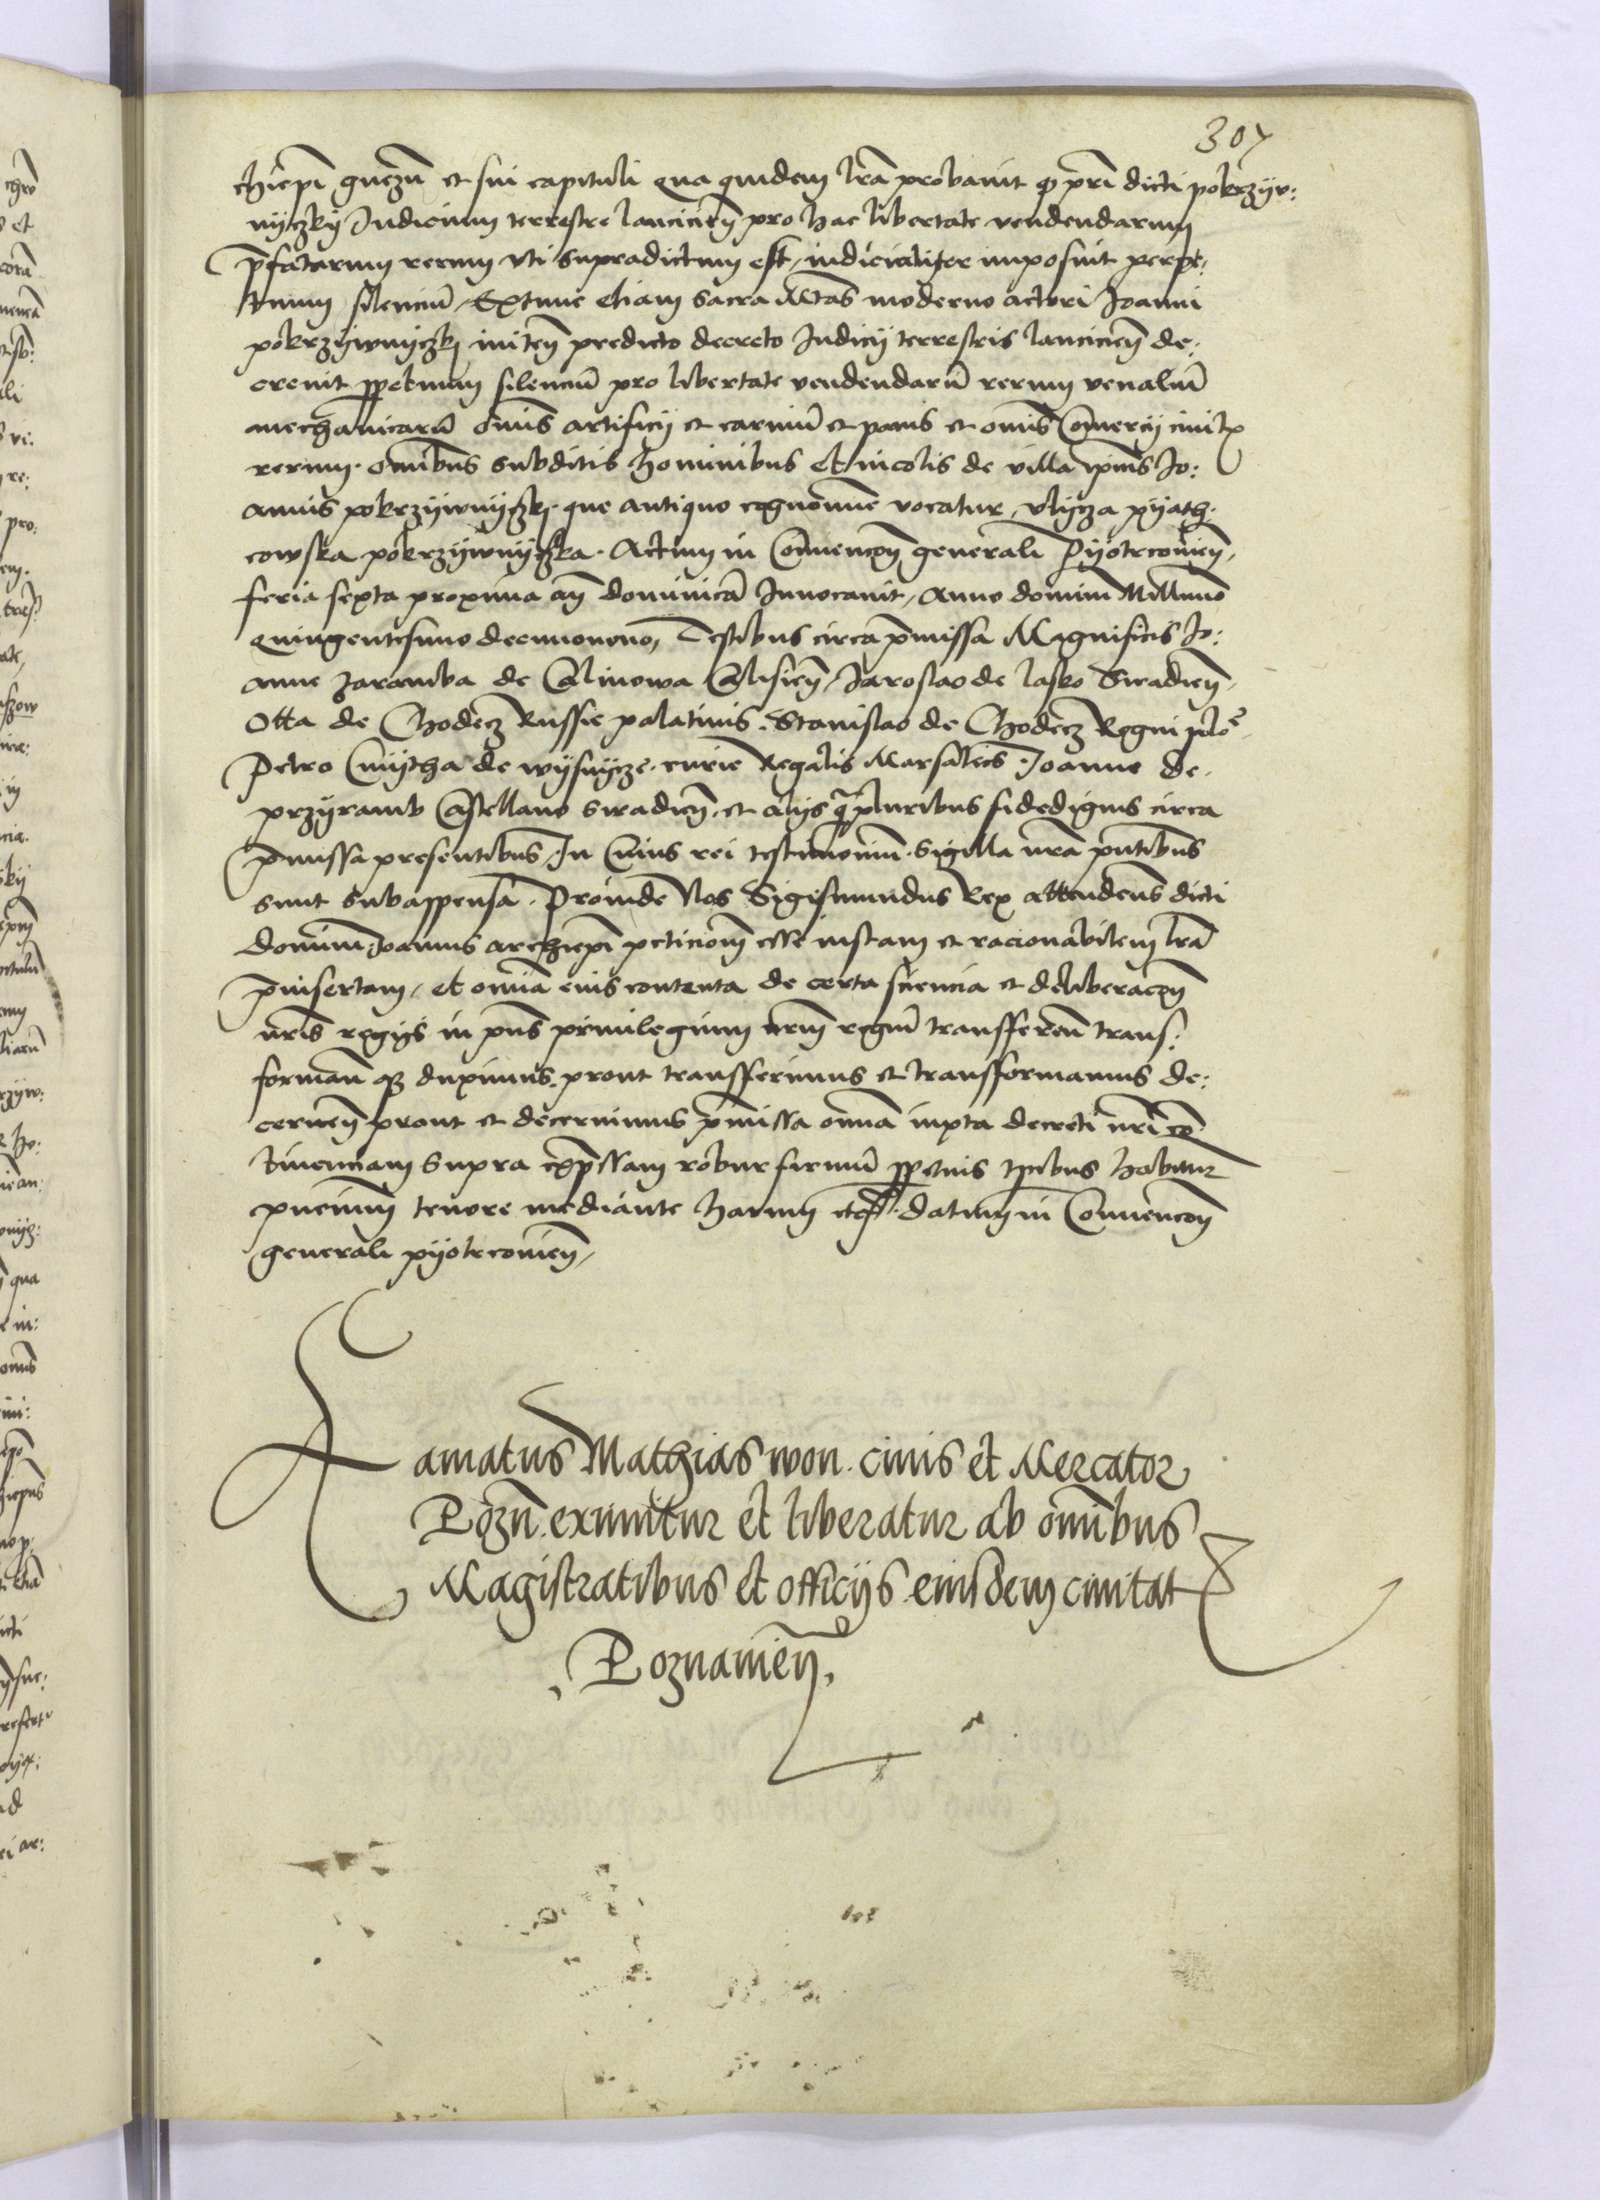 307
chiepi gnezn et sui capituli qua quidem lra probavit q pri dicti pokrzyw:
nyczky Iudicium terrestre lancicien pro hac libertate vendendarum
prefatarum rerum vti supradictum est, iudicialiter imposuit perpe:
tuum silenciu, Extunc etiam sacra Mtas moderno actori Joanni
pokrzywnyczky initen predicto decreto Iudicij terrestris lancicien de:
crevit ppetuum silenciu pro libertate vendendaru rerum venaliu
mechanicaru omis artificij et carniu et panis et omis comercij civil
rerum. omibus subditis hominibus et incolis de villa ipius Jo:
annis pokrzywnyczky. que antiquo cognomine vocatur vlycza pyath:
cowska pokrzywnyczka. Actum in Convencon generali Pyotrcovien,
feria sexta proxima an dominica Invocavit, Anno domini Millimo
quingentesimo decimonono, Testibus circa pmissa Magnificis Jo:
anne zaramba de Calinowa Calisien, Jaroslao de lasko Siradien,
Otta de Chodecz Russie palatinis. Stanislao de Chodecz Regni polo
Petro Cmytha de wysnycze. curie Regalis Marsalcis. Joanne de
przyramb Castellano siradien. et alijs q pluribus fidedignis circa
pmissa presentibus. In Cuius rei testimonium. sigilla nra pntibus
sunt subappensa. Proinde Nos Sigismundus Rex attendens dicti
domini Joannis archiepi peticiom esse iustam et racionabilem lra
pinsertam, et omia eius contenta de certa sciencia et deliberacon
nris regijs in pns privilegium nrm regiu transfferen trans:
forman q duximus. prout transfferimus et transformamus de:
cernen prout et decernimus pmissa omia iuxta decreti nri co
tinenciam supra expssam robur firmu ppetuis tpibus habitur
pncium tenore mediante harum etc. datum in Convencon
generali pyotrcovien,
Famatus Mathias won. civis et Mercator
Pozn. eximitur et liberatur ab omibus
Magistratibus et officijs eiusdem civitat
Poznanien,